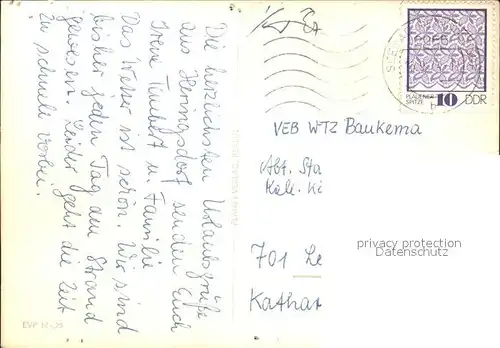 Die herzlichsten Urlaubsgrüße
aus Heringsdorf senden Euch
Irene u. Familie
Das Wetter ist schön. Wir sind
bisher jeden Tag am Strand
gewesen. Leider geht die Zeit
zu schnell vorbei.
PLAUENER
SPITZE
10 DDR
VEB WTZ Baukema
Abt. Sta
Kak. Ki
701 Le
Kathar
privacy protection
Datenschutz